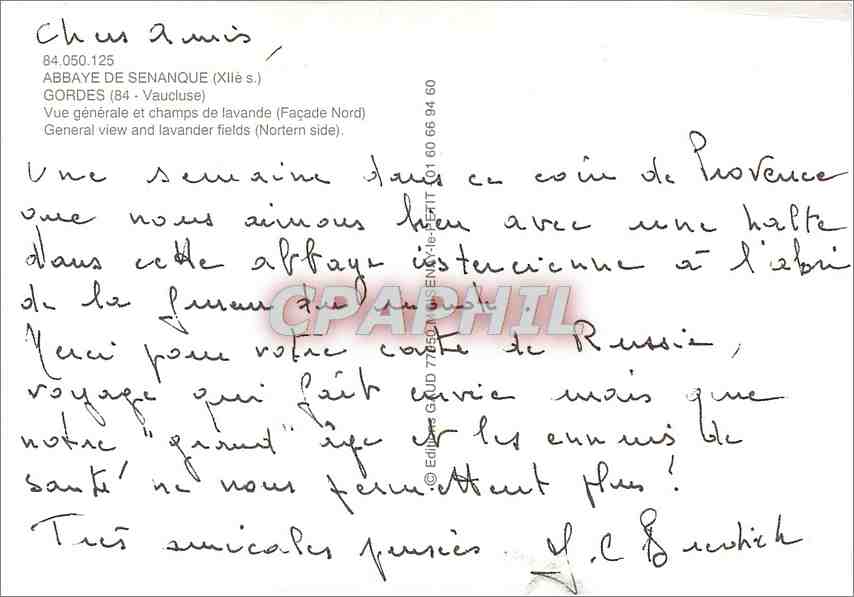 Chers Amis,
84.050.125
ABBAYE DE SENANQUE (XIIè s.)
GORDES (84 - Vaucluse)
Vue générale et champs de lavande (Façade Nord)
General view and lavander fields (Nortern side).
Une semaine dans ce coin de Provence
que nous aimons bien avec une halte
dans cette abbaye cistercienne à l'abri
de la fureur du monde.
Merci pour votre carte de Russie,
voyage qui fait envie mais que
notre "grand" âge et les ennuis de
santé ne nous permettent plus !
Très amicales pensées. J. C
© Editions GAUD 77950 MOISENAY-le-PETIT 01 60 66 94 60
CPAPHIL